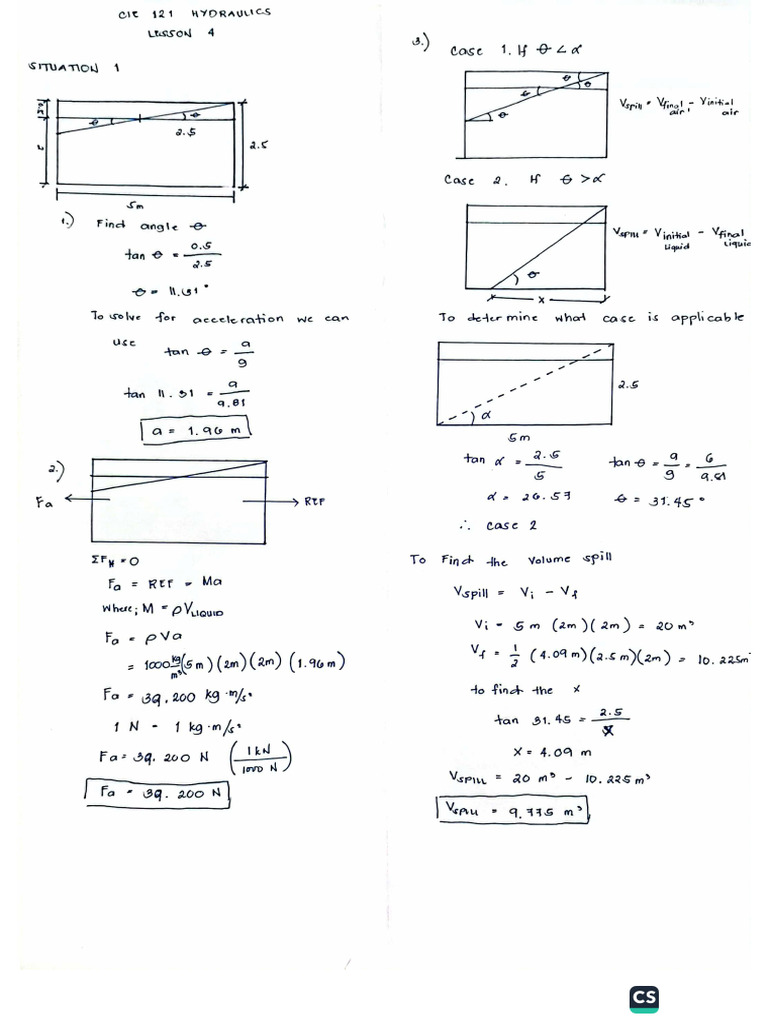 CIE 121 HYDRAULICS
LESSON 4
SITUATION 1
θ
θ
2.5
2
2.5
5m
1.) Find angle θ
tan θ = 0.5/2.5
θ = 11.31°
To solve for acceleration we can
use
tan θ = a/g
tan 11.31 = a/9.81
a = 1.96 m
2.)
Fa
REF
ΣF_H = 0
Fa = REF = Ma
Where; M = ρV_LIQUID
Fa = ρVa
= 1000 kg/m³ (5m)(2m)(2m)(1.96m)
Fa = 39,200 kg·m/s²
1 N = 1 kg·m/s²
Fa = 39.200 N (1kN/1000 N)
Fa = 39.200 N
3.) Case 1. If θ < α
θ
θ
θ
θ
Vspill = Vfinal air - Vinitial air
Case 2. If θ > α
θ
x
Vspill = Vinitial liquid - Vfinal liquid
To determine what case is applicable
2.5
α
5m
tan α = 2.5/5
tan θ = a/g = 6/9.81
α = 26.57
θ = 31.45°
∴ case 2
To Find the volume spill
Vspill = Vi - Vf
Vi = 5m (2m)(2m) = 20 m³
Vf = 1/2 (4.09m)(2.5m)(2m) = 10.225m³
to find the x
tan 31.45 = 2.5/x
x = 4.09 m
Vspill = 20 m³ - 10.225m³
Vspill = 9.775 m³
CS